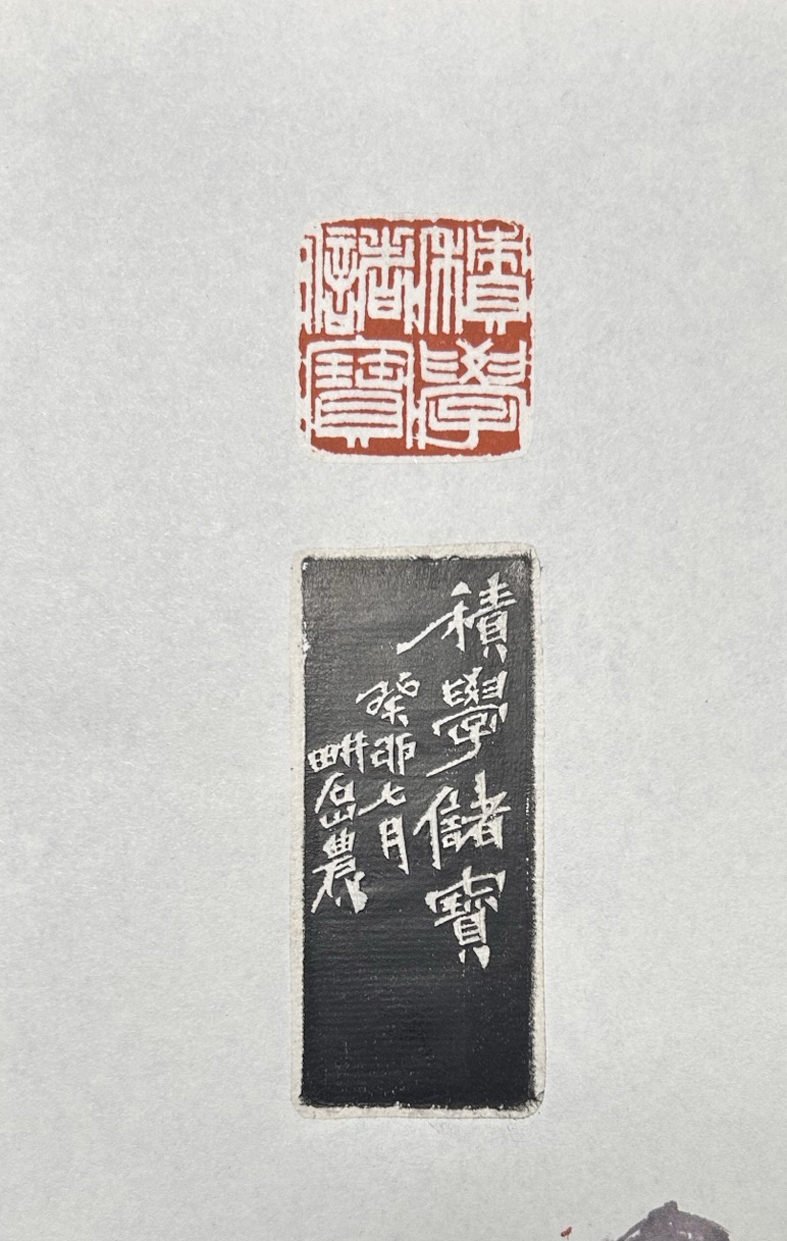 積學
儲寶
積學儲寶
癸卯七月
畊石山農